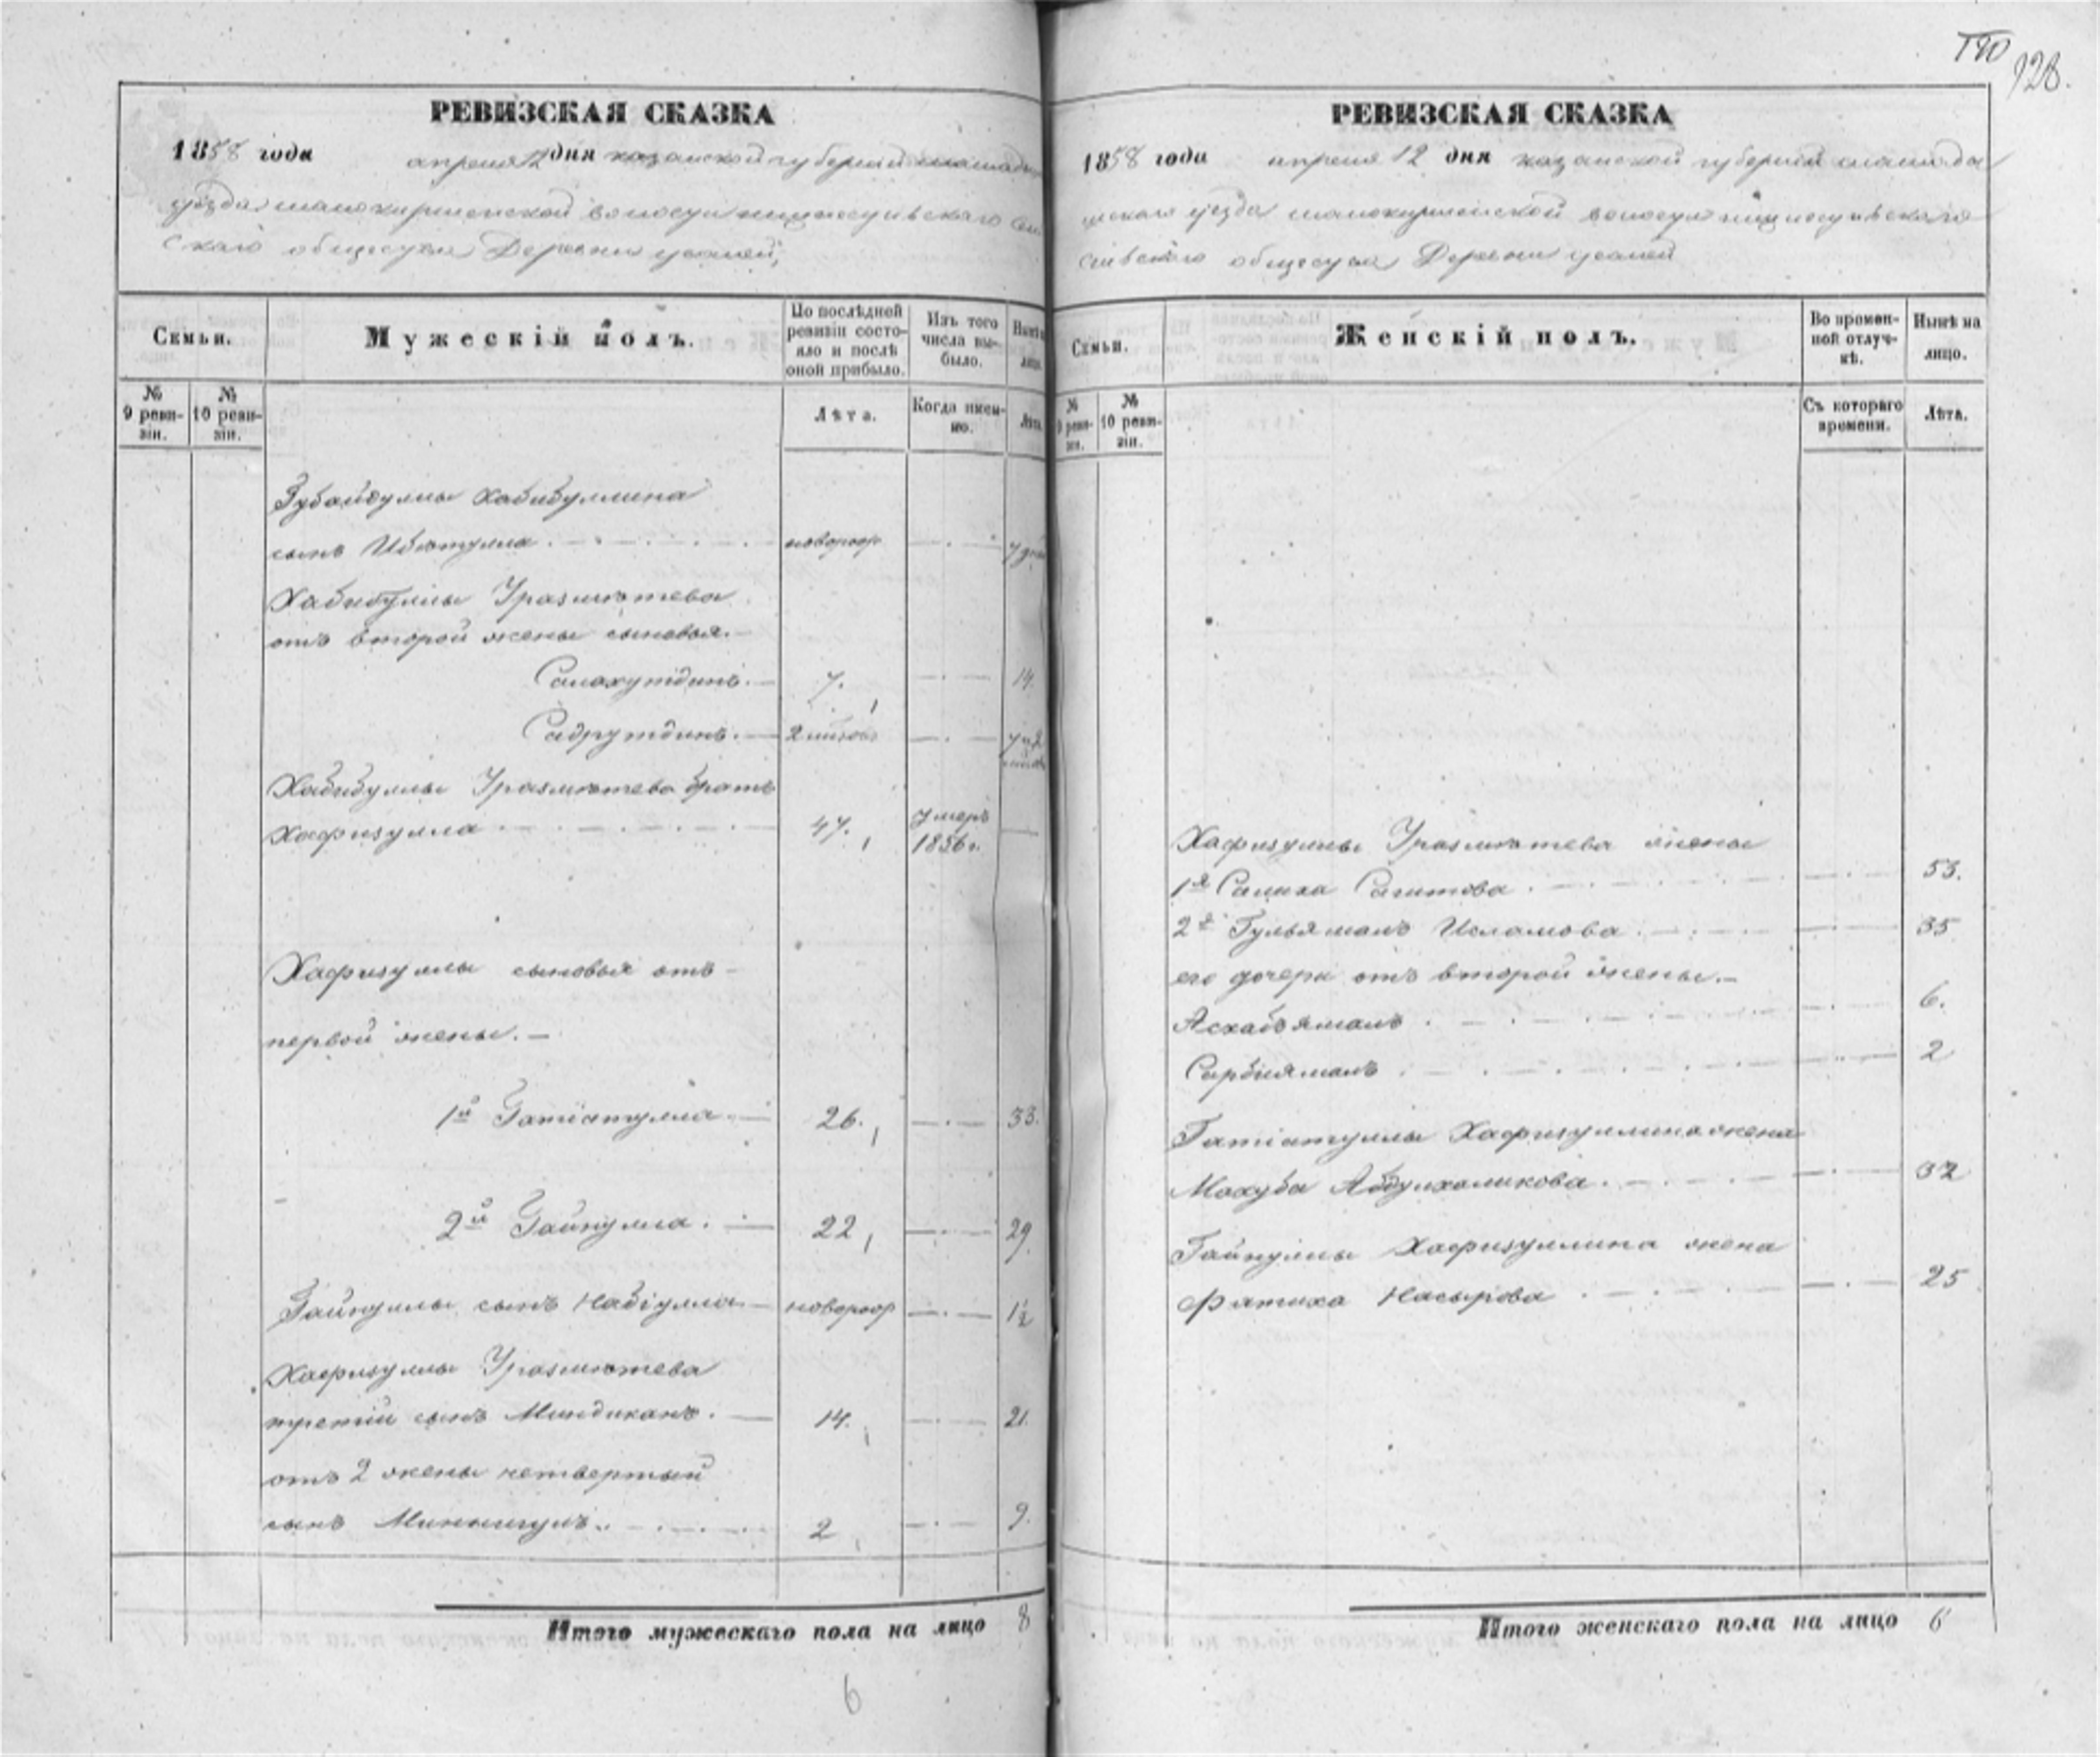 120
128.
РЕВИЗСКАЯ СКАЗКА
1858 года апреля 12 дня казанской губернии мамадыш
уезда волости
скаго общества Деревни
Семьи.
Мужескій полъ.
По послѣдней ревизіи состояло и послѣ оной прибыло.
Изъ того числа выбыло.
Нынѣ
лицо.
№ 9 ревизіи.
№ 10 ревизіи.
Лѣта.
Когда именно.
Лѣта.
Зубайдуллы Хабибуллина
сынъ новорож 7 дней
Хабибуллы Уразметева
отъ второй жены сыновья.
Салахутдинъ. 7. 14.
Садрутдинъ. 2 мѣсяц 7 и 2 мѣсяц
Хабибуллы Уразметева братъ
Хафизулла 47. умеръ 1856 г.
Хафизуллы сыновья отъ
первой жены.
1й Гатіатулла 26. 33.
2й Гайнулла. 22 29.
Гайнуллы сынъ Набіулла новорож 1½
Хафизуллы Уразметева
третій сынъ Миндиханъ. 14. 21.
отъ 2 жены четвертый
сынъ Миннигулъ. 2 9.
Итого мужескаго пола на лицо 8
6
РЕВИЗСКАЯ СКАЗКА
1858 года апреля 12 дня казанской губернии мамады
шскаго уезда волости
общества Деревни
Семьи.
Женскій полъ.
Во временной отлучкѣ.
Нынѣ на лицо.
№ 9 ревизіи.
№ 10 ревизіи.
Съ котораго времени.
Лѣта.
Хафизуллы Уразметева жены
1я Салиха Сагитова 53.
2я Гульямалъ Исламова. 35
его дочери отъ второй жены.
Асхабъямалъ 6.
Сарбиямалъ 2
Гатіатуллы Хафизуллина жена
Махуба Абдулхаликова. 32
Гайнуллы Хафизуллина жена
Фатиха Насырова 25
Итого женскаго пола на лицо 6